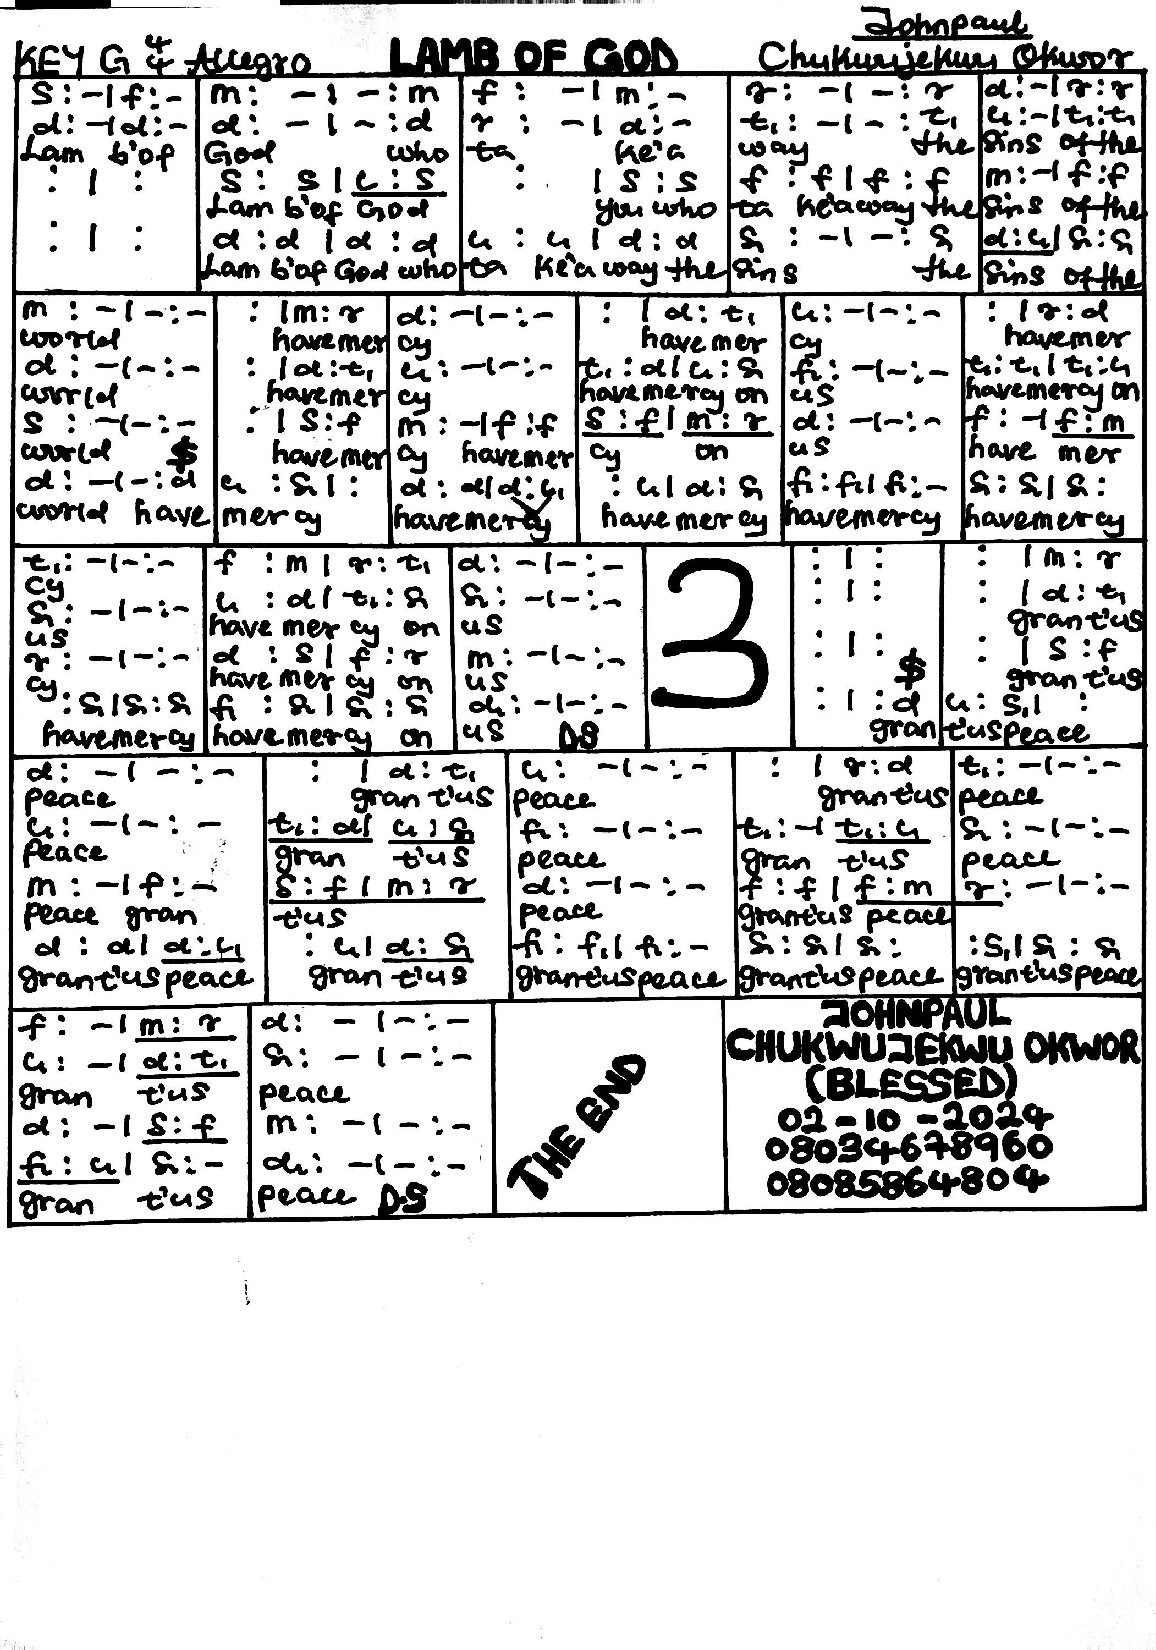 Johnpaul
KEY G 4/4 Allegro LAMB OF GOD Chukwujekwu Okwor
s : – | f : – m : – | – : m f : – | m : – r : – | – : r d : – | r : r
d : – | d : – d : – | – : d r : – | d : – t₁ : – | – : t₁ l₁ : – | t₁ : t₁
Lam b'of God who ta ke'a way the Sins of the
: | : s : s | l : s : | s : s f : f | f : f m : – | f : f
Lam b'of God you who ta ke'a way the Sins of the
: | : d : d | d : d l₁ : l₁ | d : d s₁ : – | – : s₁ d : l₁ | s₁ : s₁
Lam b'of God who ta ke'a way the Sins the Sins of the
m : – | – : – : | m : r d : – | – : – : | d : t₁ l₁ : – | – : – : | r : d
world have mer cy have mer cy have mer
d : – | – : – : | d : t₁ l₁ : – | – : – t₁ : d | l₁ : s₁ f₁ : – | – : – t₁ : t₁ | t₁ : l₁
world have mer cy have mercy on us have mercy on
s : – | – : – : | s : f m : – | f : f s : f | m : r d : – | – : – f : – | f : m
world $ have mer cy have mer cy on us have mer
d : – | – : d l₁ : s₁ | : d : d | d : l₁ : l₁ | d : s₁ f₁ : f₁ | f₁ : – s₁ : s₁ | s₁ :
world have mercy have mercy have mercy have mercy have mercy
t₁ : – | – : – f : m | r : t₁ d : – | – : – 3 : | : : | m : r
cy
s₁ : – | – : – l₁ : d | t₁ : s₁ s₁ : – | – : – : | : : | d : t₁
us have mer cy on us gran t'us
r : – | – : – d : s | f : r m : – | – : – : | : $ : | s : f
cy have mer cy on us gran t'us
: s₁ | s₁ : s₁ f₁ : s₁ | s₁ : s₁ d₁ : – | – : – : | : d l₁ : s₁ | :
have mercy have mercy on us DS gran t'us peace
d : – | – : – : | d : t₁ l₁ : – | – : – : | r : d t₁ : – | – : –
peace gran t'us peace gran t'us peace
l₁ : – | – : – t₁ : d | l₁ : s₁ f₁ : – | – : – t₁ : – | t₁ : l₁ s₁ : – | – : –
peace gran t'us peace gran t'us peace
m : – | f : – s : f | m : r d : – | – : – f : f | f : m r : – | – : –
peace gran t'us peace gran t'us peace
d : d | d : l₁ : l₁ | d : s₁ f₁ : f₁ | f₁ : – s₁ : s₁ | s₁ : : s₁ | s₁ : s₁
gran t'us peace gran t'us gran t'us peace gran t'us peace gran t'us peace
f : – | m : r d : – | – : –
l₁ : – | d : t₁ s₁ : – | – : –
gran t'us peace
d : – | s : f m : – | – : –
f₁ : l₁ | s₁ : – d₁ : – | – : –
gran t'us peace D.S
THE END
JOHNPAUL
CHUKWUJEKWU OKWOR
(BLESSED)
02-10-2024
08034678960
08085864804